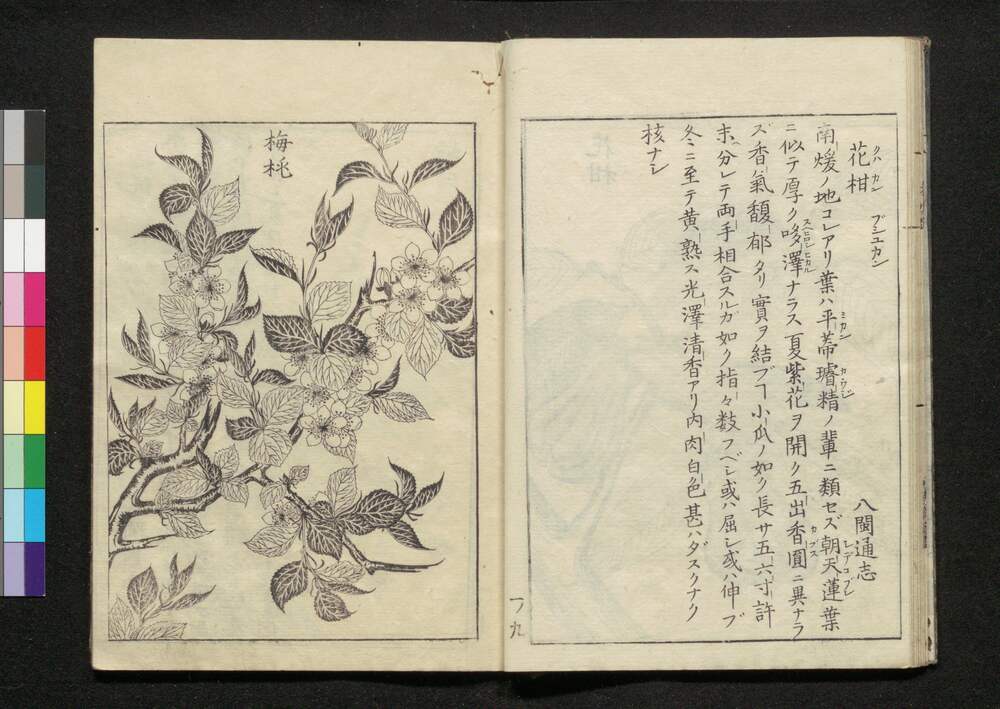 花柑 クハカン ブシユカン 八閩通志
南煖ノ地コレアリ葉ハ平蔕 ミカン 璿精 カウジ ノ輩ニ類セズ朝天蓮葉
ニ似テ厚ク哆澤ナラス夏紫花ヲ開ク五出香圓 カブス ニ異ナラ
ズ香氣馥郁タリ實ヲ結ブヿ小瓜ノ如ク長サ五六寸許
末分レテ両手相合スルガ如ク指々数フベシ或ハ屈シ或ハ伸ブ
冬ニ至テ黄熟ス光澤清香アリ内肉白色甚ハダスクナク
核ナシ
梅桃
一ノ九